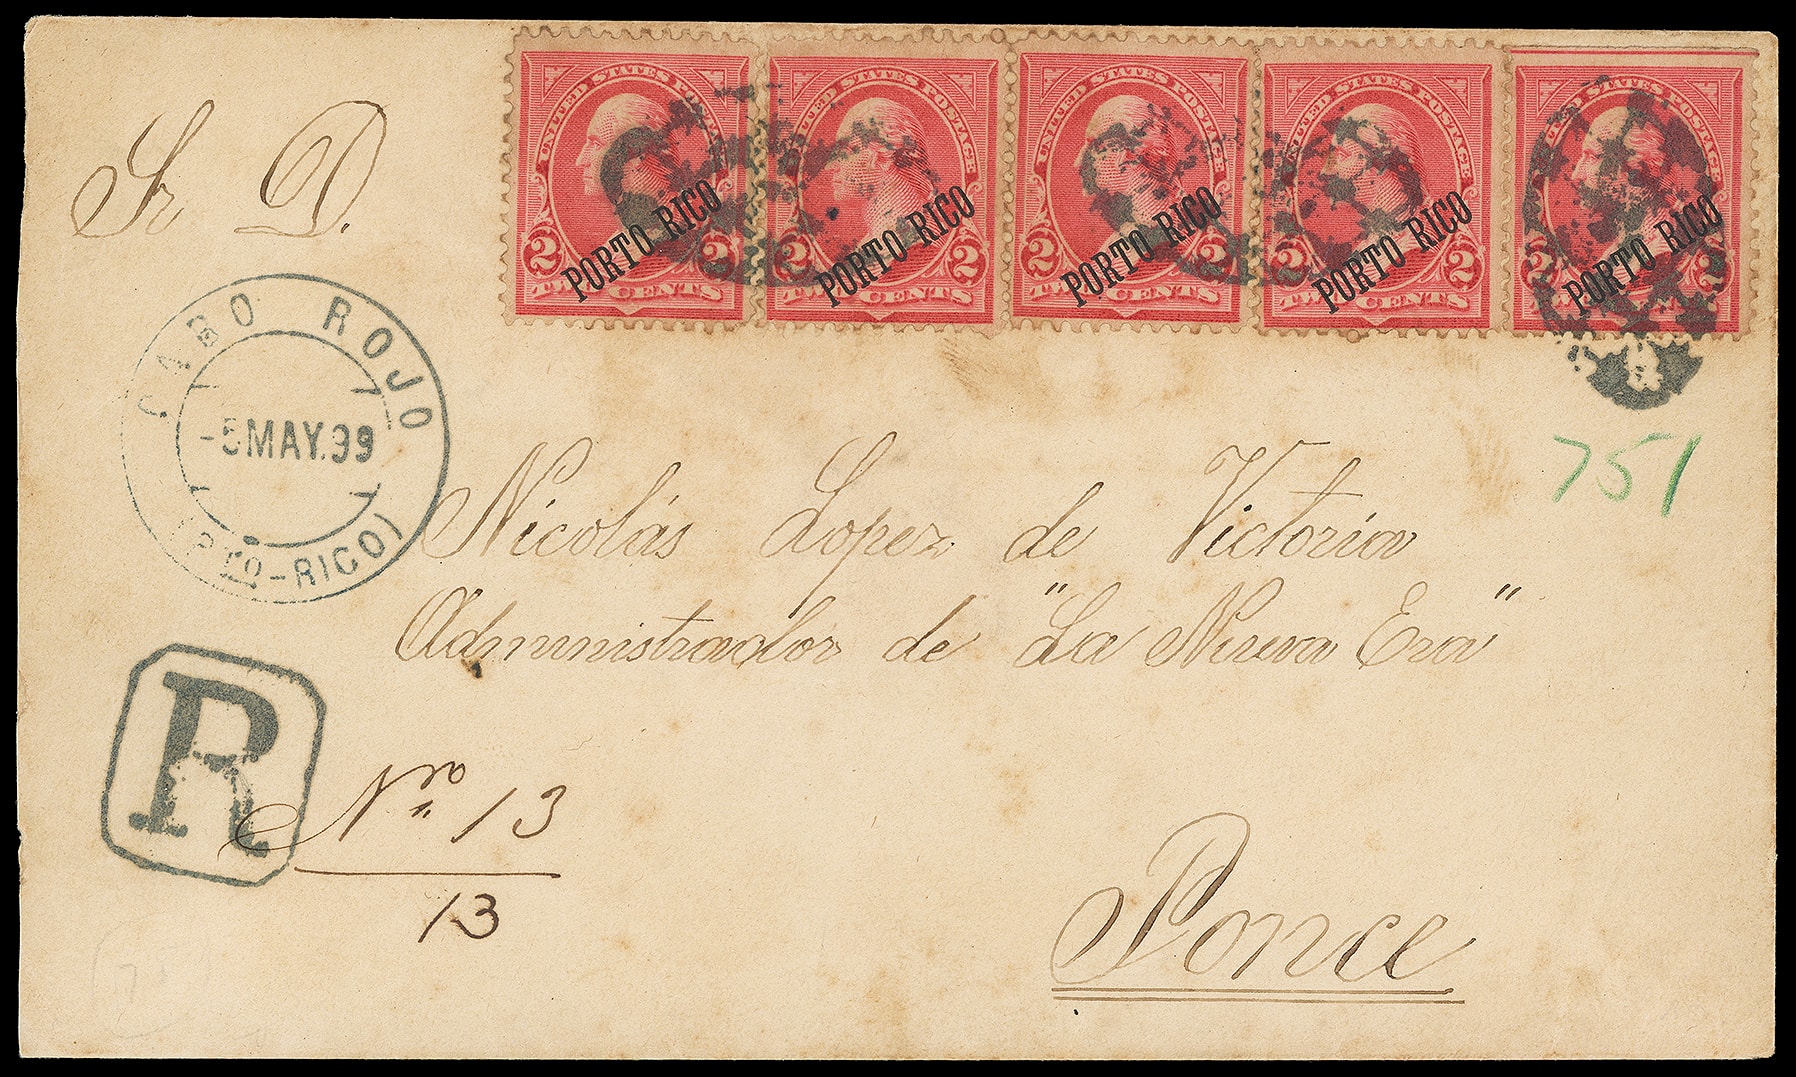 UNITED STATES POSTAGE
PORTO RICO
2 2
TWO CENTS
UNITED STATES POSTAGE
PORTO RICO
2
TWO CENTS
UNITED STATES POSTAGE
PORTO RICO
2 2
TWO CENTS
UNITED STATES POSTAGE
PORTO RICO
2 2
TWO CENTS
UNITED STATES POSTAGE
PORTO RICO
2 2
TWO CENTS
Sr D.
CABO ROJO
-5 MAY.99
(PTO-RICO)
751
Nicolás Lopez de Victoria
Administrador de "La Nueva Era"
R
Nro 13
13
Ponce